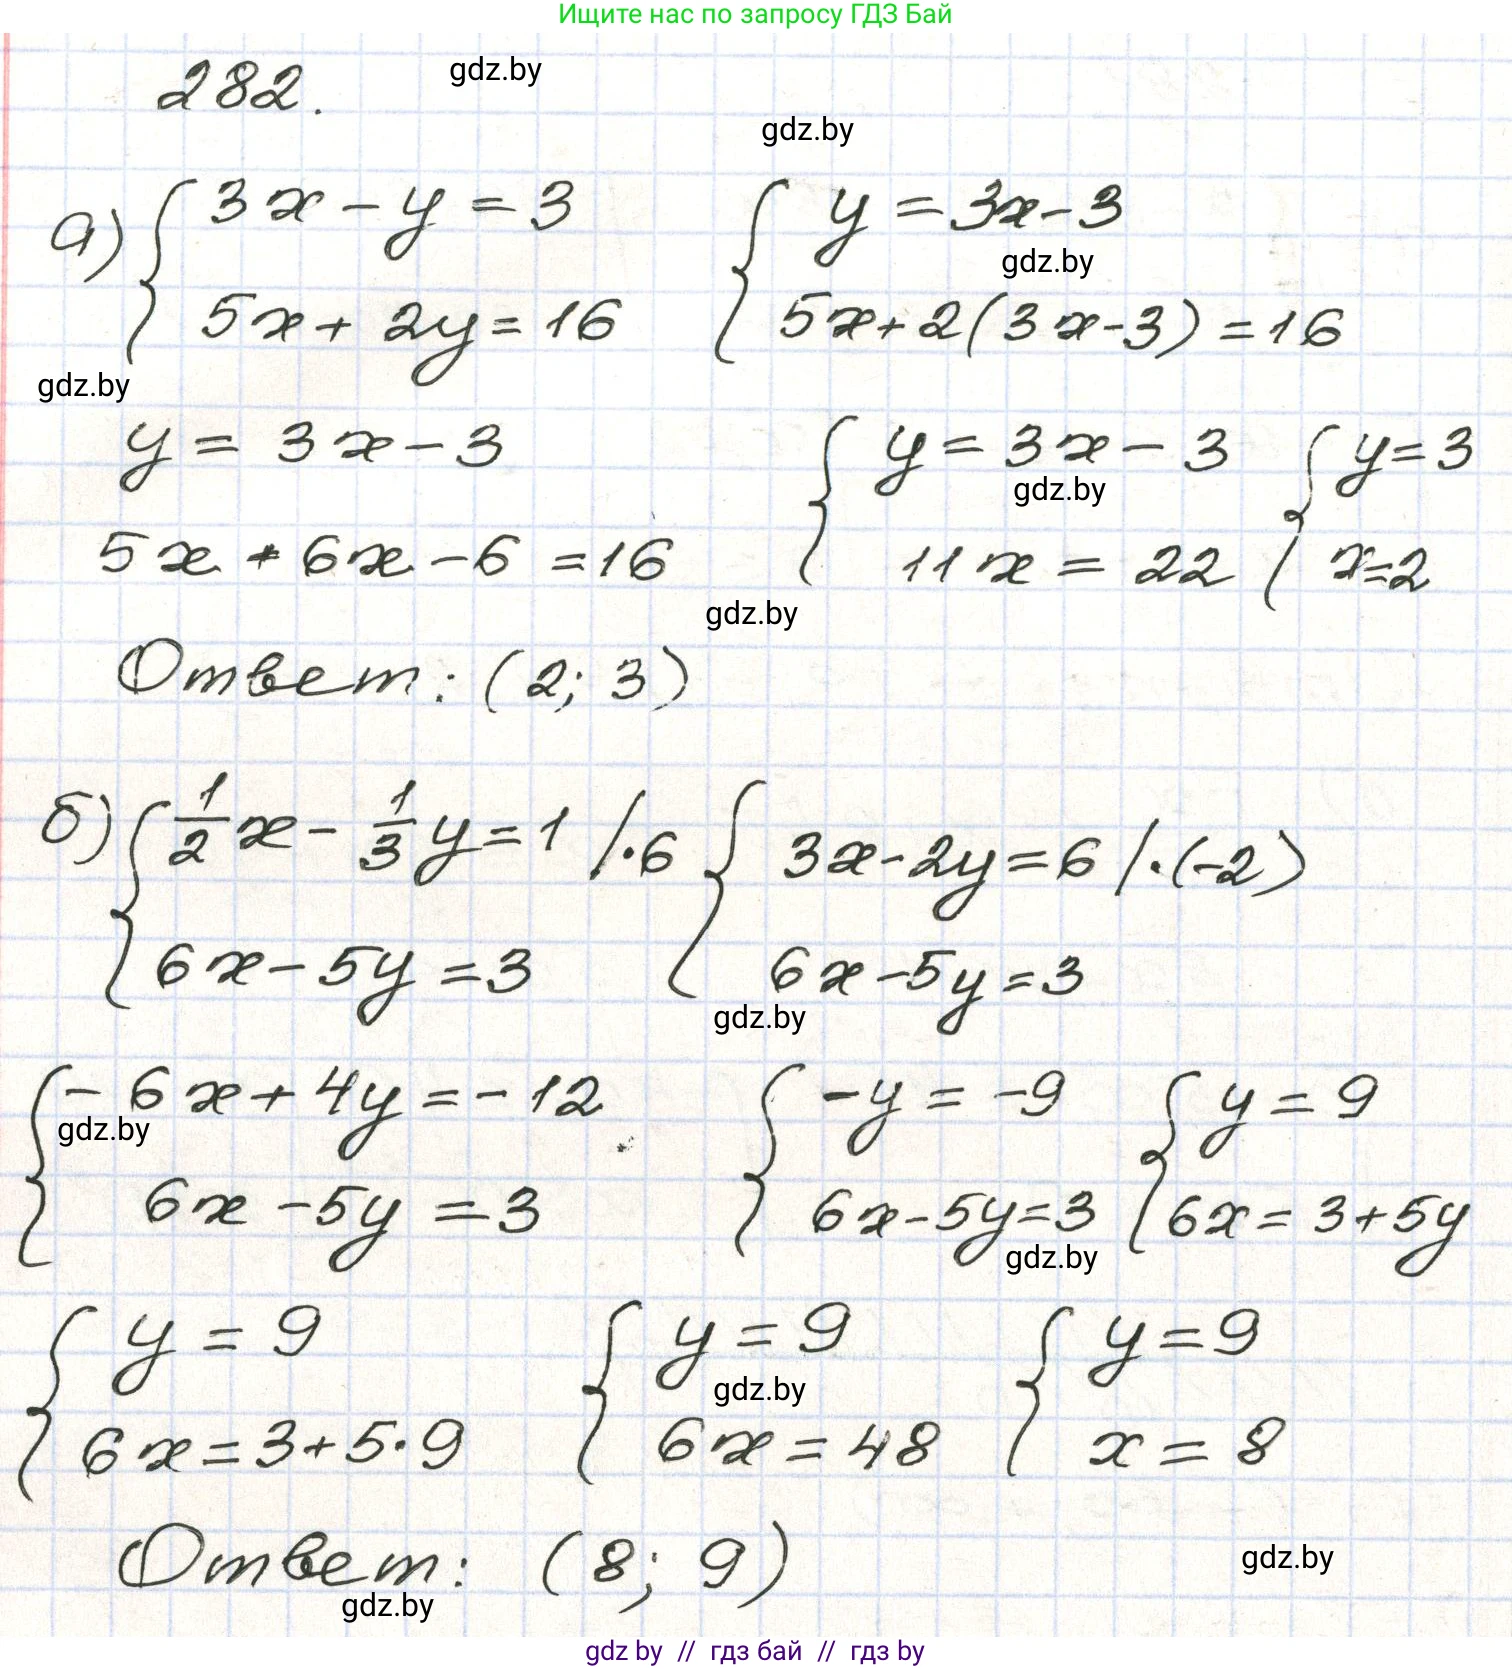 Ищите нас по запросу ГДЗ Бай
282.
gdz.by
gdz.by
а) { 3x - y = 3
5x + 2y = 16
{ y = 3x - 3
gdz.by
5x + 2(3x - 3) = 16
gdz.by
y = 3x - 3
5x + 6x - 6 = 16
{ y = 3x - 3
gdz.by
11x = 22
{ y = 3
x = 2
gdz.by
Ответ: (2; 3)
б) { 1/2 x - 1/3 y = 1 / · 6
6x - 5y = 3
{ 3x - 2y = 6 / · (-2)
6x - 5y = 3
gdz.by
{ - 6x + 4y = - 12
gdz.by
6x - 5y = 3
{ -y = -9
6x - 5y = 3
gdz.by
{ y = 9
6x = 3 + 5y
{ y = 9
6x = 3 + 5 · 9
{ y = 9
gdz.by
6x = 48
{ y = 9
x = 8
Ответ: (8; 9)
gdz.by
gdz.by
gdz by // гдз бай // гдз by